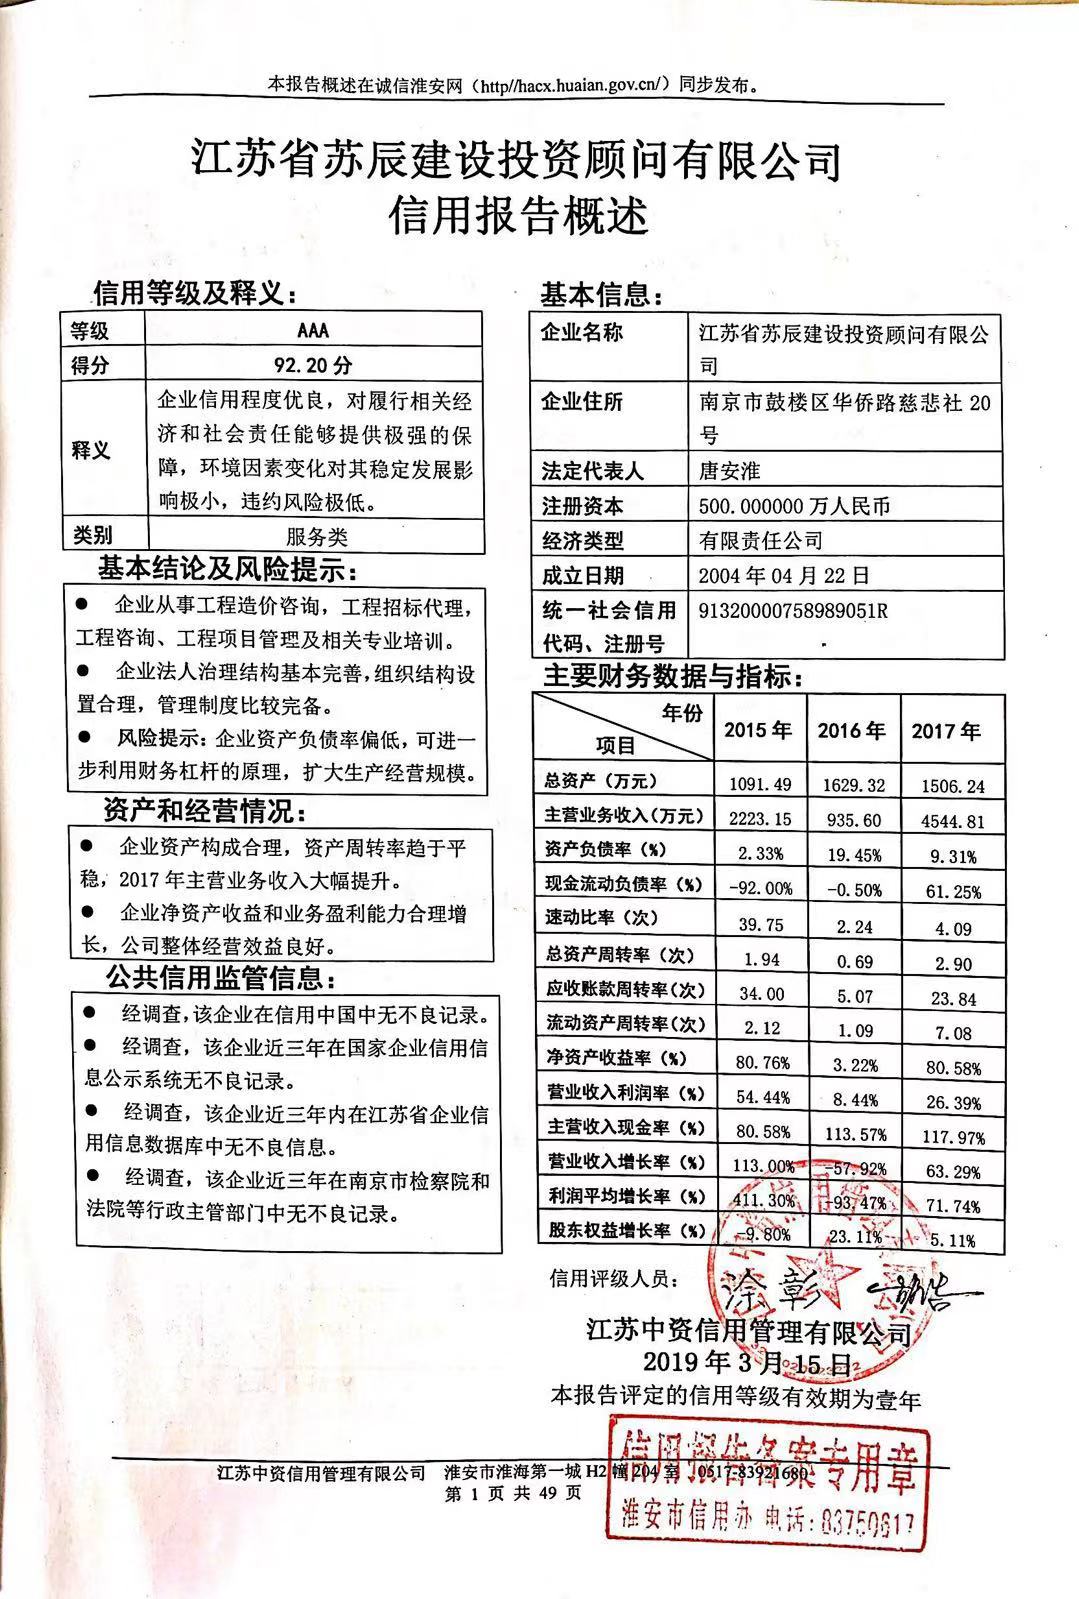 本报告概述在诚信淮安网（http//hacx.huaian.gov.cn/）同步发布。
江苏省苏辰建设投资顾问有限公司
信用报告概述
信用等级及释义：
等级 AAA
得分 92.20分
释义
企业信用程度优良，对履行相关经
济和社会责任能够提供极强的保
障，环境因素变化对其稳定发展影
响极小，违约风险极低。
类别 服务类
基本结论及风险提示：
● 企业从事工程造价咨询，工程招标代理，
工程咨询、工程项目管理及相关专业培训。
● 企业法人治理结构基本完善，组织结构设
置合理，管理制度比较完备。
● 风险提示：企业资产负债率偏低，可进一
步利用财务杠杆的原理，扩大生产经营规模。
资产和经营情况：
● 企业资产构成合理，资产周转率趋于平
稳，2017年主营业务收入大幅提升。
● 企业净资产收益和业务盈利能力合理增
长，公司整体经营效益良好。
公共信用监管信息：
● 经调查，该企业在信用中国中无不良记录。
● 经调查，该企业近三年在国家企业信用信
息公示系统无不良记录。
● 经调查，该企业近三年内在江苏省企业信
用信息数据库中无不良信息。
● 经调查，该企业近三年在南京市检察院和
法院等行政主管部门中无不良记录。
基本信息：
企业名称 江苏省苏辰建设投资顾问有限公
司
企业住所 南京市鼓楼区华侨路慈悲社20
号
法定代表人 唐安淮
注册资本 500.000000万人民币
经济类型 有限责任公司
成立日期 2004年04月22日
统一社会信用 91320000758989051R
代码、注册号
主要财务数据与指标：
年份
项目
2015年 2016年 2017年
总资产（万元） 1091.49 1629.32 1506.24
主营业务收入(万元) 2223.15 935.60 4544.81
资产负债率（%） 2.33% 19.45% 9.31%
现金流动负债率（%） -92.00% -0.50% 61.25%
速动比率（次） 39.75 2.24 4.09
总资产周转率（次） 1.94 0.69 2.90
应收账款周转率(次) 34.00 5.07 23.84
流动资产周转率(次) 2.12 1.09 7.08
净资产收益率（%） 80.76% 3.22% 80.58%
营业收入利润率（%） 54.44% 8.44% 26.39%
主营收入现金率（%） 80.58% 113.57% 117.97%
营业收入增长率（%） 113.00% -57.92% 63.29%
利润平均增长率（%） 411.30% -93.47% 71.74%
股东权益增长率（%） -9.80% 23.11% 5.11%
信用评级人员： 涂彰
江苏中资信用管理有限公司
2019年3月15日
本报告评定的信用等级有效期为壹年
江苏中资信用管理有限公司 淮安市淮海第一城H2幢204室 0517-83921680
第 1 页 共 49 页
信用报告备案专用章
淮安市信用办 电话：83750617